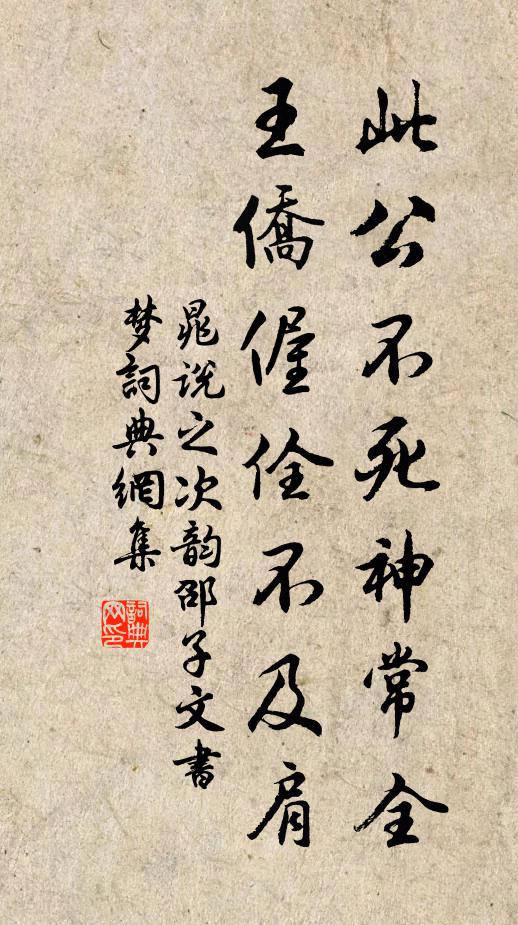 此公不死神常全
王僑偓佺不及肩
晁说之次韵邵子文書
梦詞典網集
詞典
网印